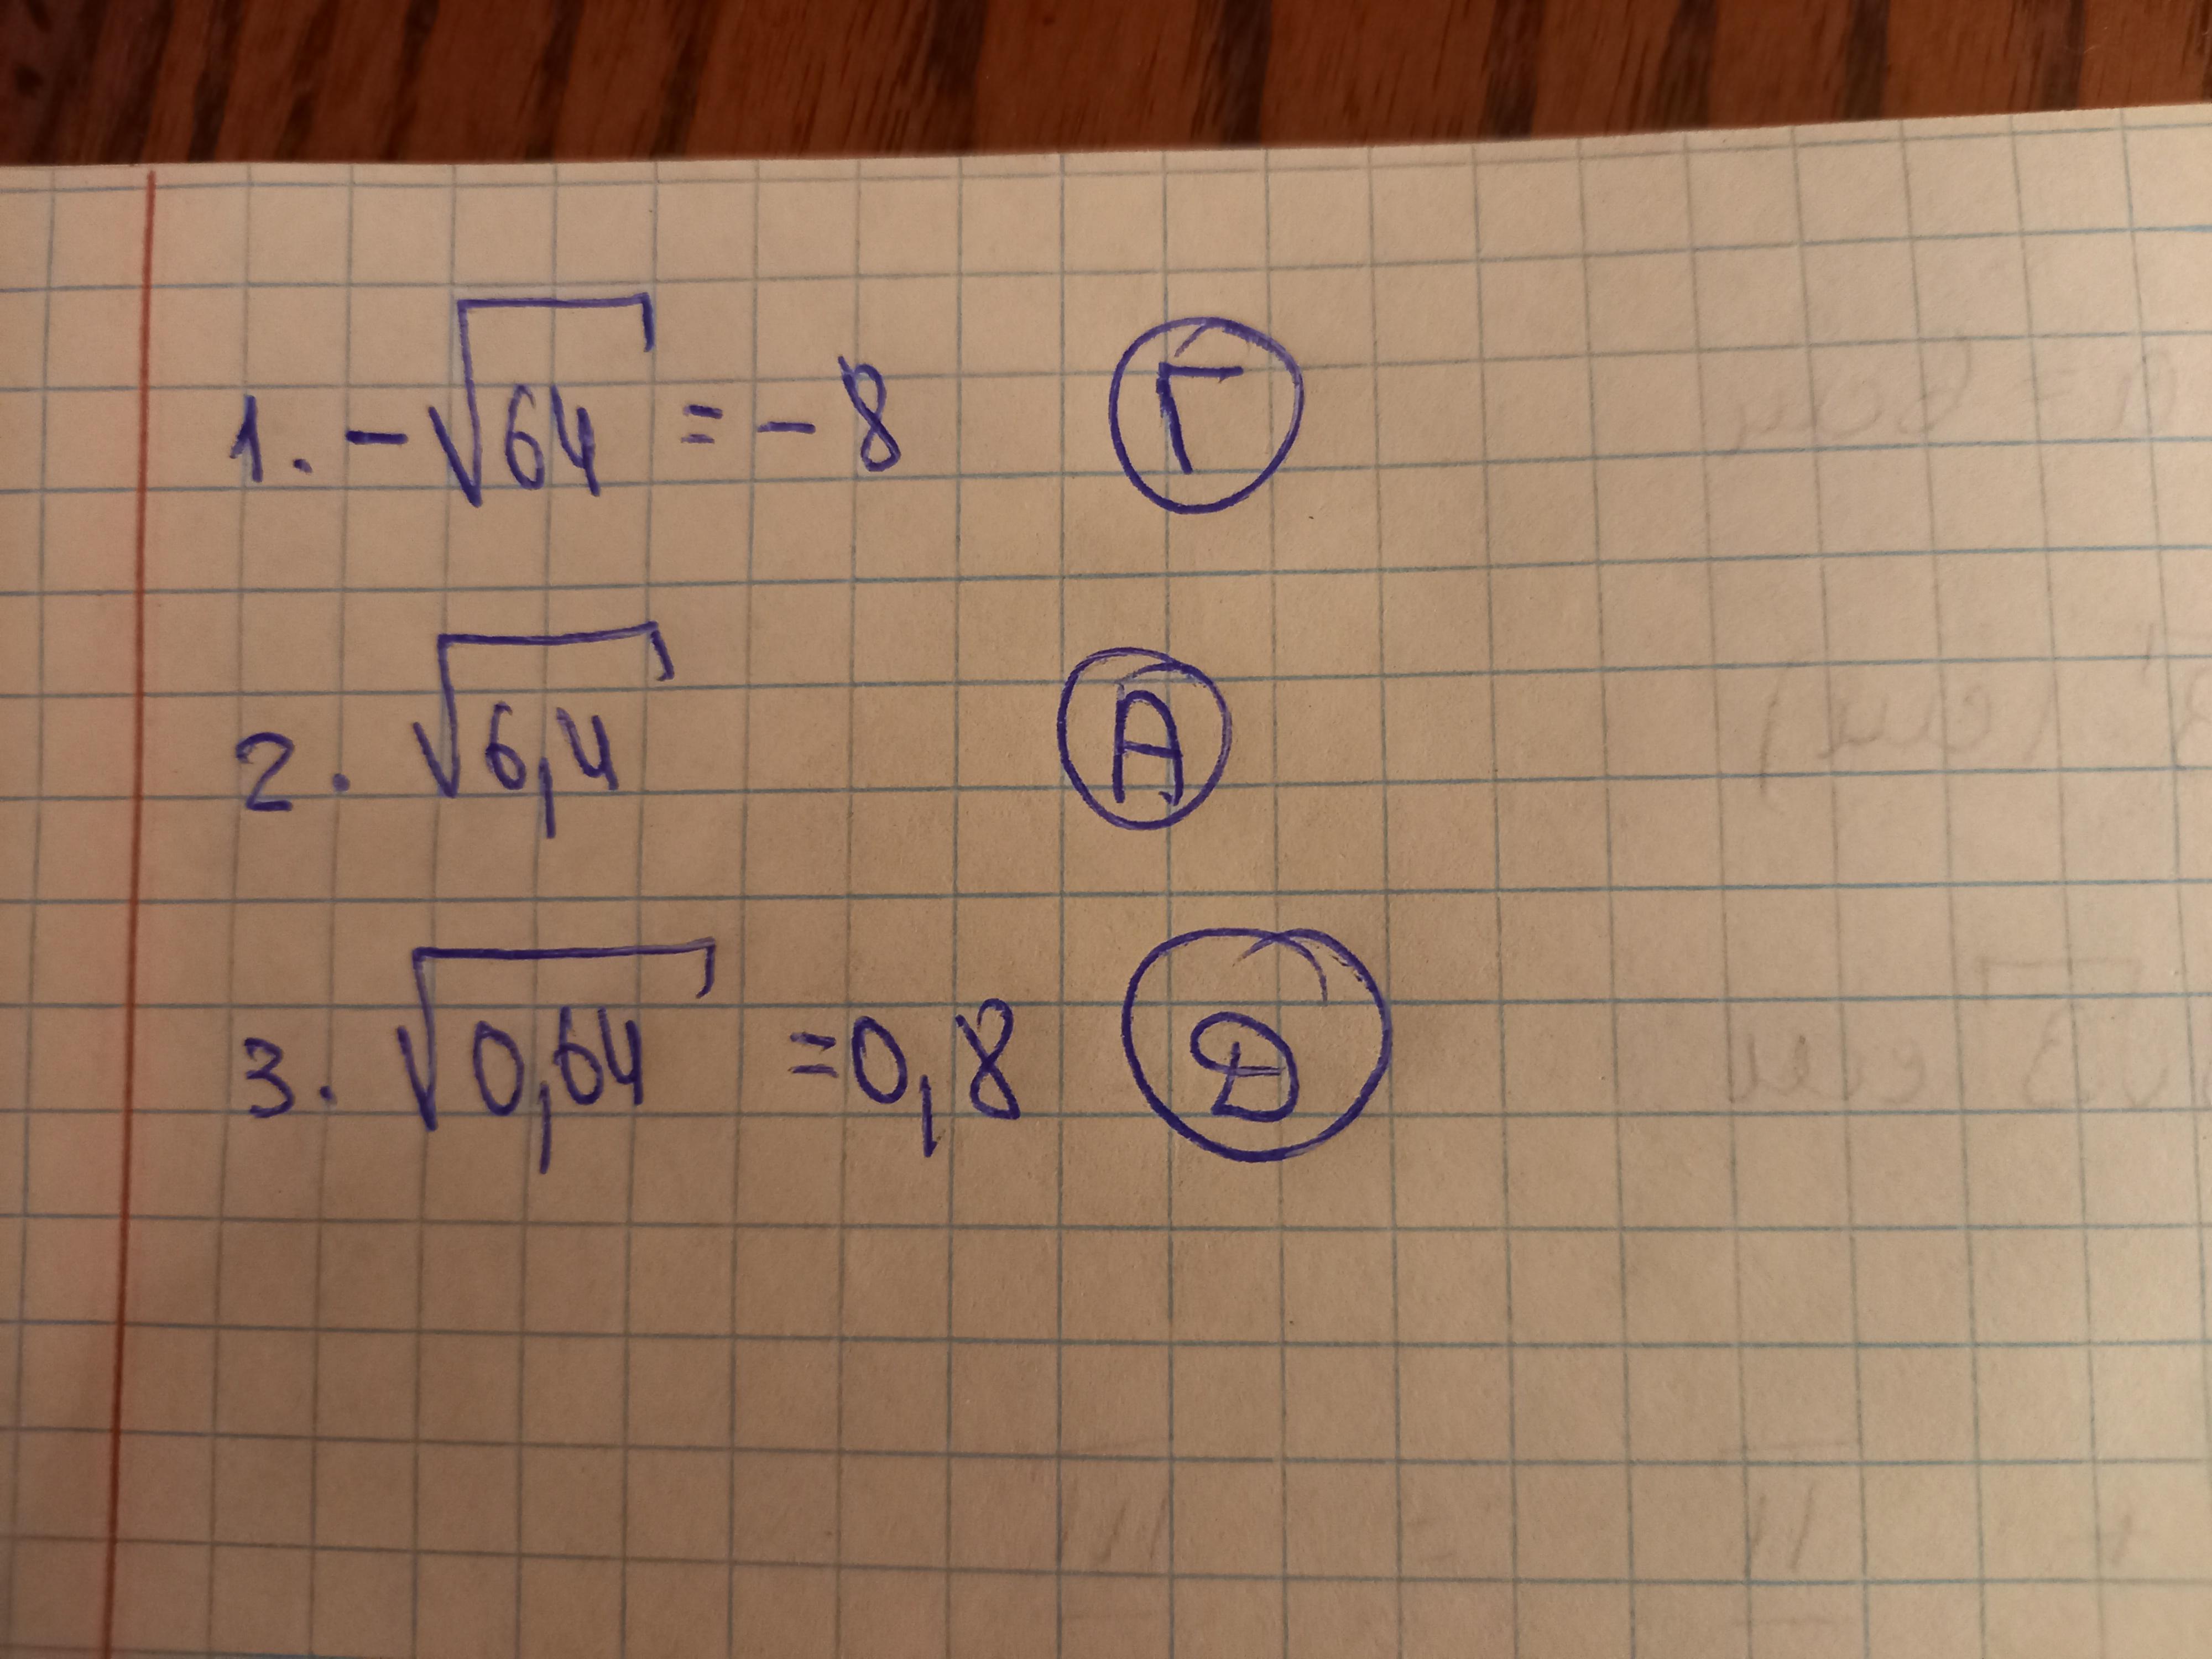 1. -√64 = -8 Г
2. √6,4 А
3. √0,64 =0,8 Д